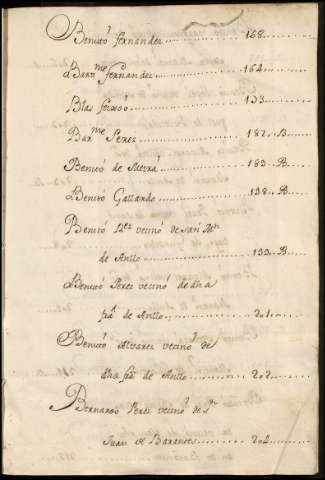 Benitto fernandez ........ 168...
Barme fernandez ........ 164...
Blas ........ 133...
Barme Perez ........ 182. B...
Benitto de Sierra ........ 183. B...
Benito Gallardo ........ 138. B...
Benito vecino de san Mn
de Anllo ........ 133. B...
Benito Perez vecino de dha
fra de Anllo ........ 201...
Benito Alvarez vecino de
dha fra de Anllo ........ 202...
Bernardo Perez vecino de Sn
Juan de Barantes ........ 204...